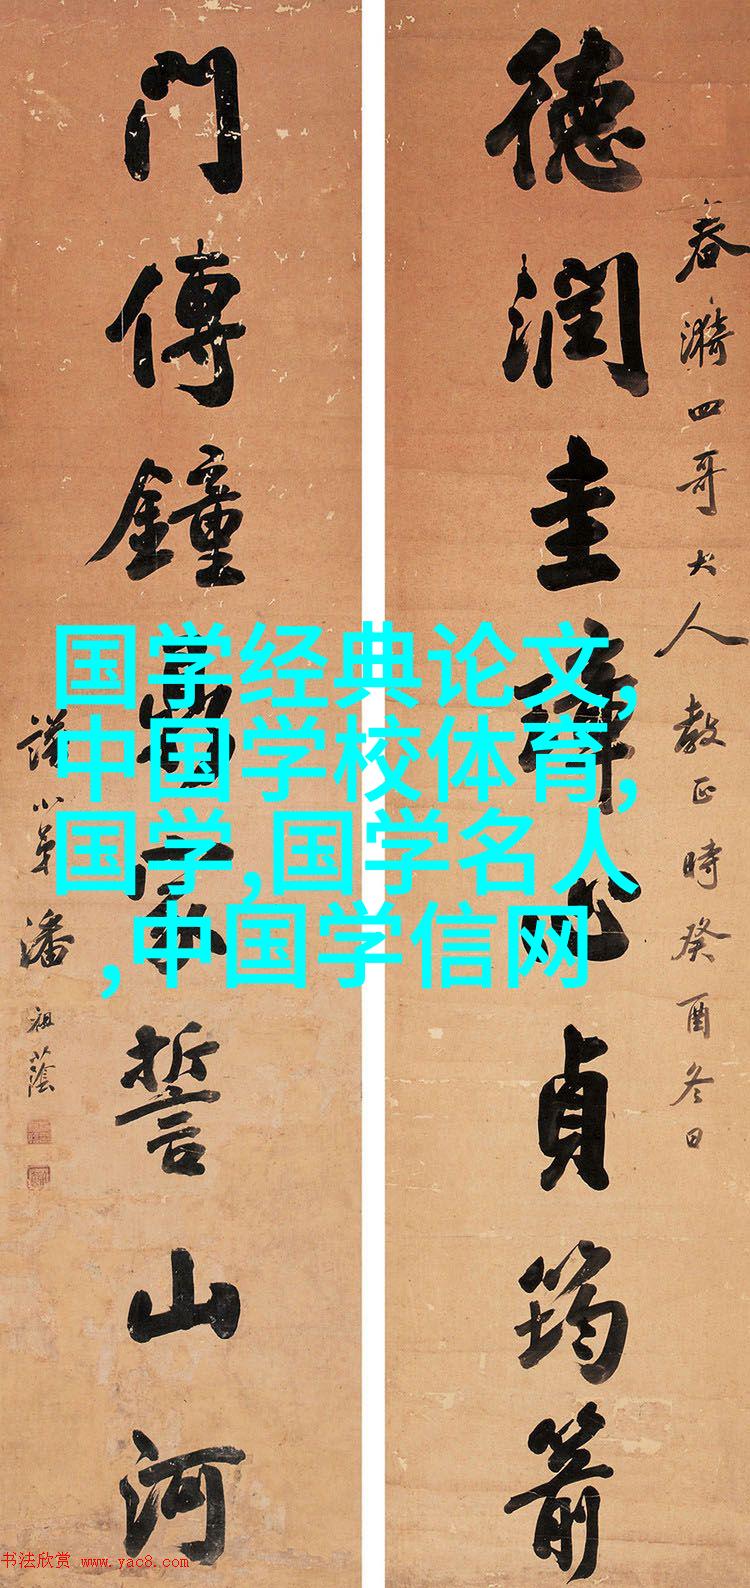 春漪四哥大人教正時癸酉冬日
德潤圭璋心貞筠箭
門傳鐘鼎家誓山河
譜小弟潘祖蔭
国学经典论文,
中国学校体育,
国学,国学名人
,中国学信网
书法欣赏 www.yac8.com